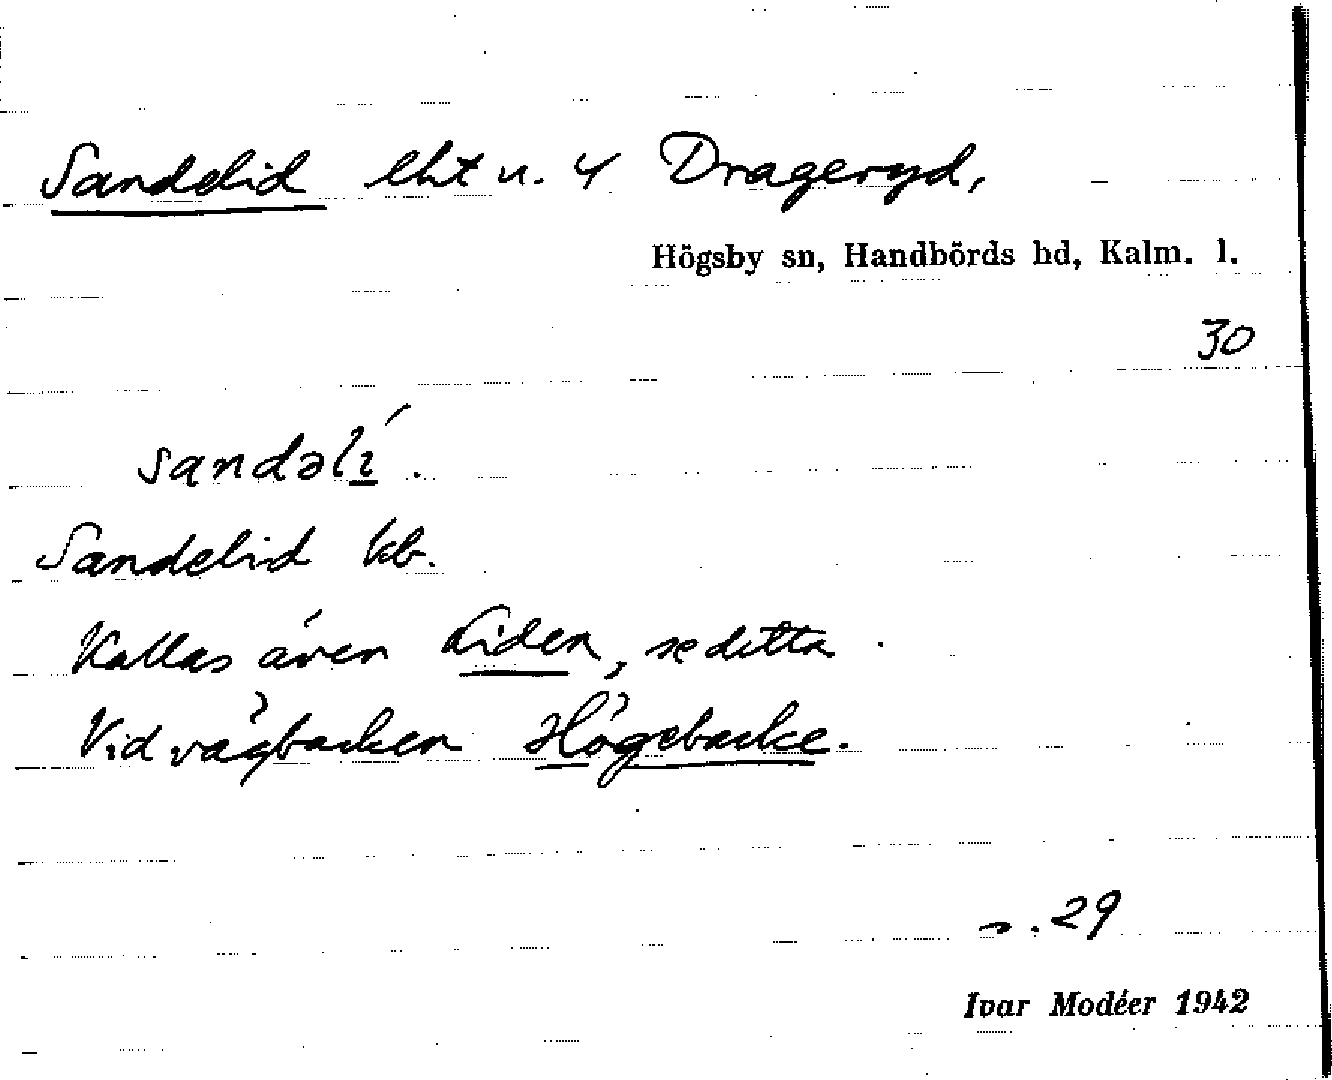 Sandelid lht u. 4 Drageryd,
Högsby sn, Handbörds hd, Kalm. l.
30
sandəlí.
Sandelid kb.
Kallas även Liden, se detta.
Vid vägbacken Högebacke.
29
Ivar Modéer 1942